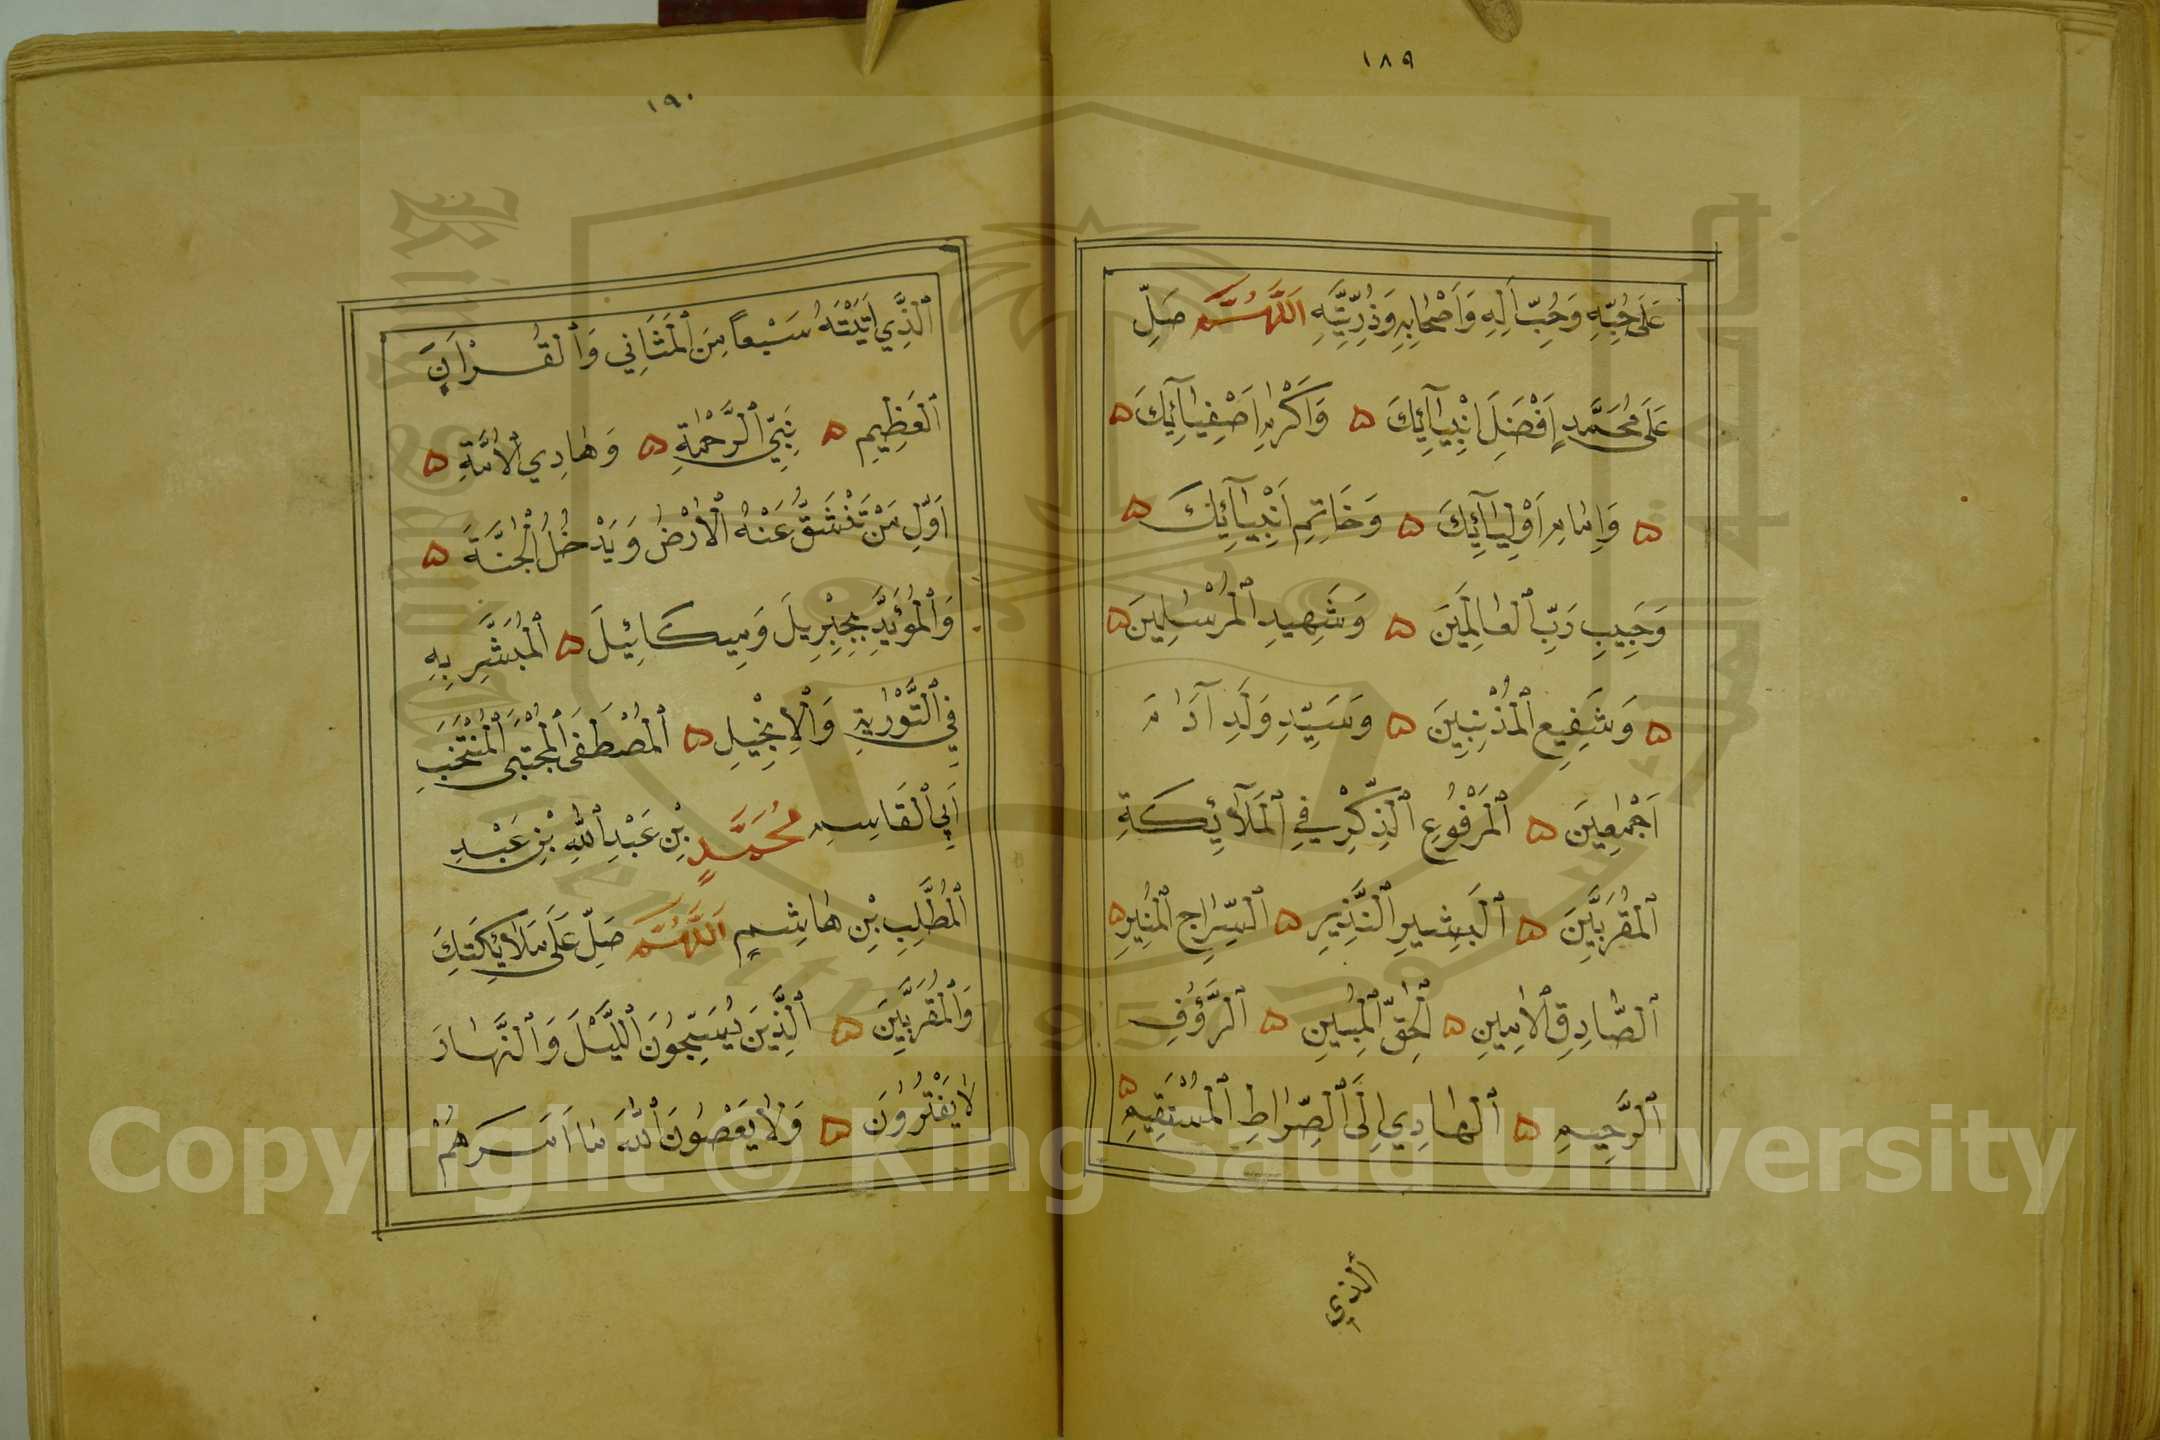 ١٨٩
عَلَى حُبِّهِ وَحُبِّ اَلِهِ وَاَصْحَابِهِ وَذُرِّيَّتِهِ اَللَّهُمَّ صَلِّ
عَلَى مُحَمَّدٍ اَفْضَلِ اَنْبِيَآئِكَ ۝ وَاَكْرَمِ اَصْفِيَآئِكَ ۝
۝ وَاِمَامِ اَوْلِيَآئِكَ ۝ وَخَاتِمِ اَنْبِيَآئِكَ ۝
وَحَبِيبِ رَبِّ ٱلْعَالَمِينَ ۝ وَشَهِيدِ ٱلْمُرْسَلِينَ ۝
۝ وَشَفِيعِ ٱلْمُذْنِبِينَ ۝ وَسَيِّدِ وَلَدِ آدَمَ
اَجْمَعِينَ ۝ ٱلْمَرْفُوعِ ٱلذِّكْرِ فِي ٱلْمَلَآئِكَةِ
ٱلْمُقَرَّبِينَ ۝ ٱلْبَشِيرِ ٱلنَّذِيرِ ۝ ٱلسِّرَاجِ ٱلْمُنِيرِ ۝
ٱلصَّادِقِ ٱلْاَمِينِ ۝ ٱلْحَقِّ ٱلْمُبِينِ ۝ ٱلرَّؤُفِ
ٱلرَّحِيمِ ۝ ٱلْهَادِي اِلَى ٱلصِّرَاطِ ٱلْمُسْتَقِيمِ ۝
ٱلَّذِي
١٩٠
ٱلَّذِي اَتَيْتَهُ سَبْعاً مِنَ ٱلْمَثَانِي وَٱلْقُرْاَنَ
ٱلْعَظِيمِ ۝ نَبِيِّ ٱلرَّحْمَةِ ۝ وَهَادِي ٱلْاُمَّةِ ۝
اَوَّلِ مَنْ تَنْشَقُّ عَنْهُ ٱلْاَرْضُ وَيَدْخُلُ ٱلْجَنَّةَ ۝
وَٱلْمُؤَيَّدِ بِجِبْرِيلَ وَمِيكَائِيلَ ۝ ٱلْمُبَشَّرِ بِهِ
فِي ٱلتَّوْرَايةِ وَٱلْاِنْجِيلِ ۝ ٱلْمُصْطَفَى ٱلْمُجْتَبَى ٱلْمُنْتَخَبِ
اَبِي ٱلْقَاسِمِ مُحَمَّدٍ بْنِ عَبْدِ ٱللّٰهِ بْنِ عَبْدِ
ٱلْمُطَّلِبِ بْنِ هَاشِمٍ اَللَّهُمَّ صَلِّ عَلَى مَلَائِكَتِكَ
وَٱلْمُقَرَّبِينَ ۝ ٱلَّذِينَ يُسَبِّحُونَ ٱللَّيْلَ وَٱلنَّهَارَ
لَا يَفْتُرُونَ ۝ وَلَا يَعْصُونَ ٱللّٰهَ مَا اَمَرَهُمْ
Copyright © King Saud University